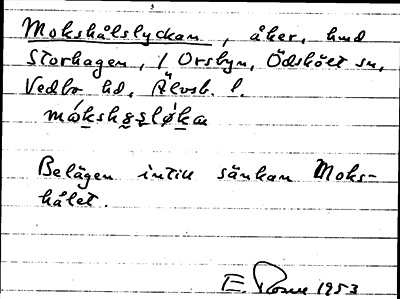 Mokshålslyckan, åker, hmd
Storhagen, 1 Orsbyn, Ödskölt sn,
Vedbo hd, Älvsb. l.
Belägen intill sänkan Moks-
hålet.
E. 1953